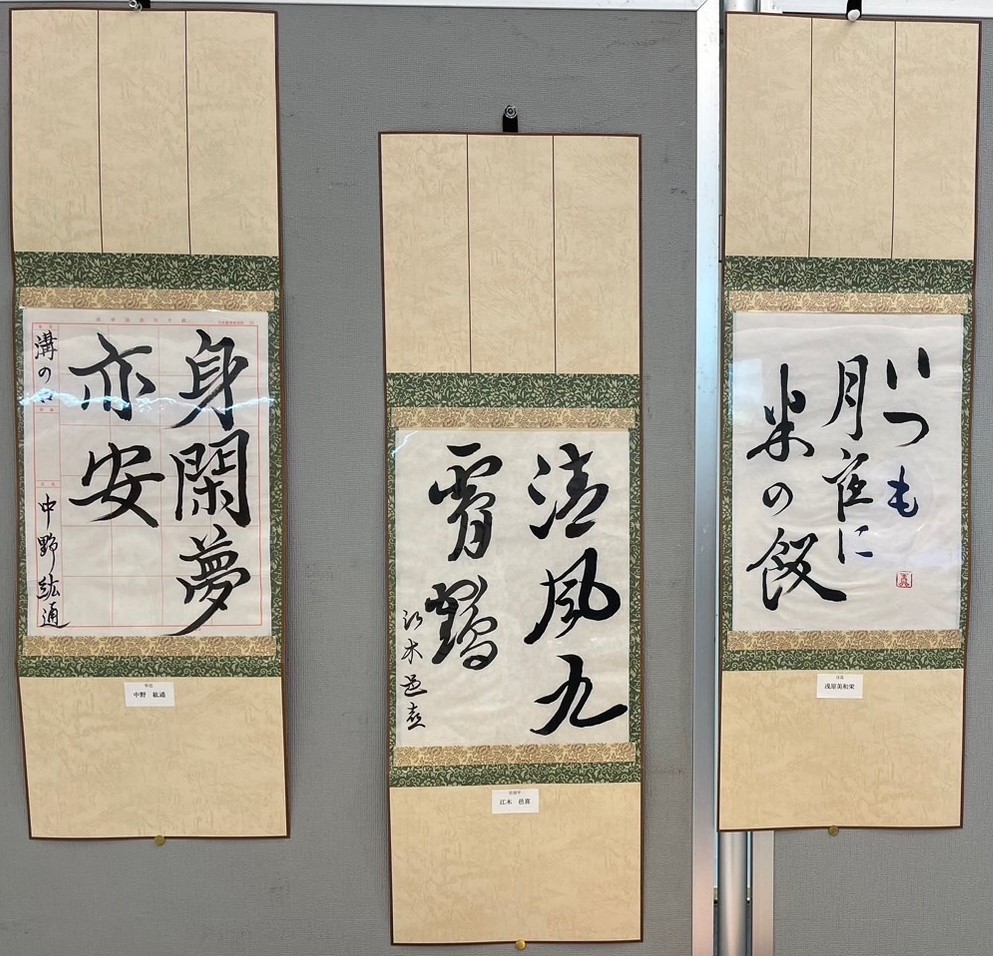 身閑夢
亦安
溝の口
中野紘通
中野 紘通
清風九
霄鶴
江木邑喜
江木 邑喜
いつも
月夜に
米の飯
浅屋美和栄